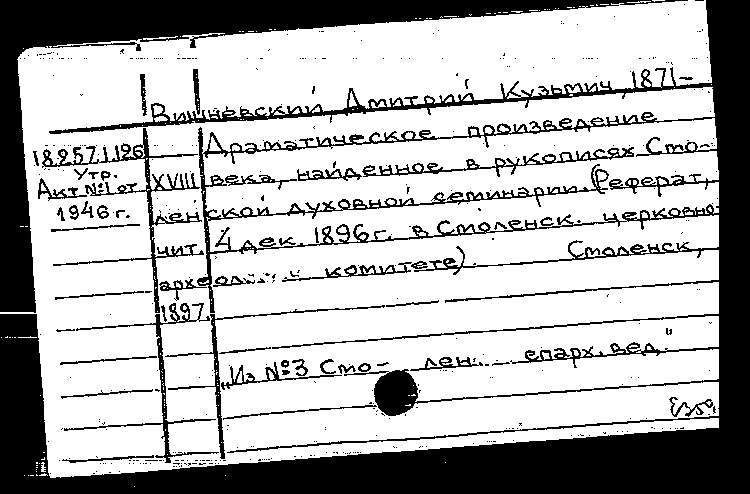 Вишневский, Дмитрий Кузьмич, 1871-
18257.1.126
Утр.
Акт №1 от
1946 г.
Драматическое произведение
XVIII века, найденное в рукописях Смо-
ленской духовной семинарии. (Реферат,
чит. 4 дек. 1896 г. в Смоленск. церковно-
археол. комитете). Смоленск,
1897.
„Из №3 Смо- лен. епарх. вед."